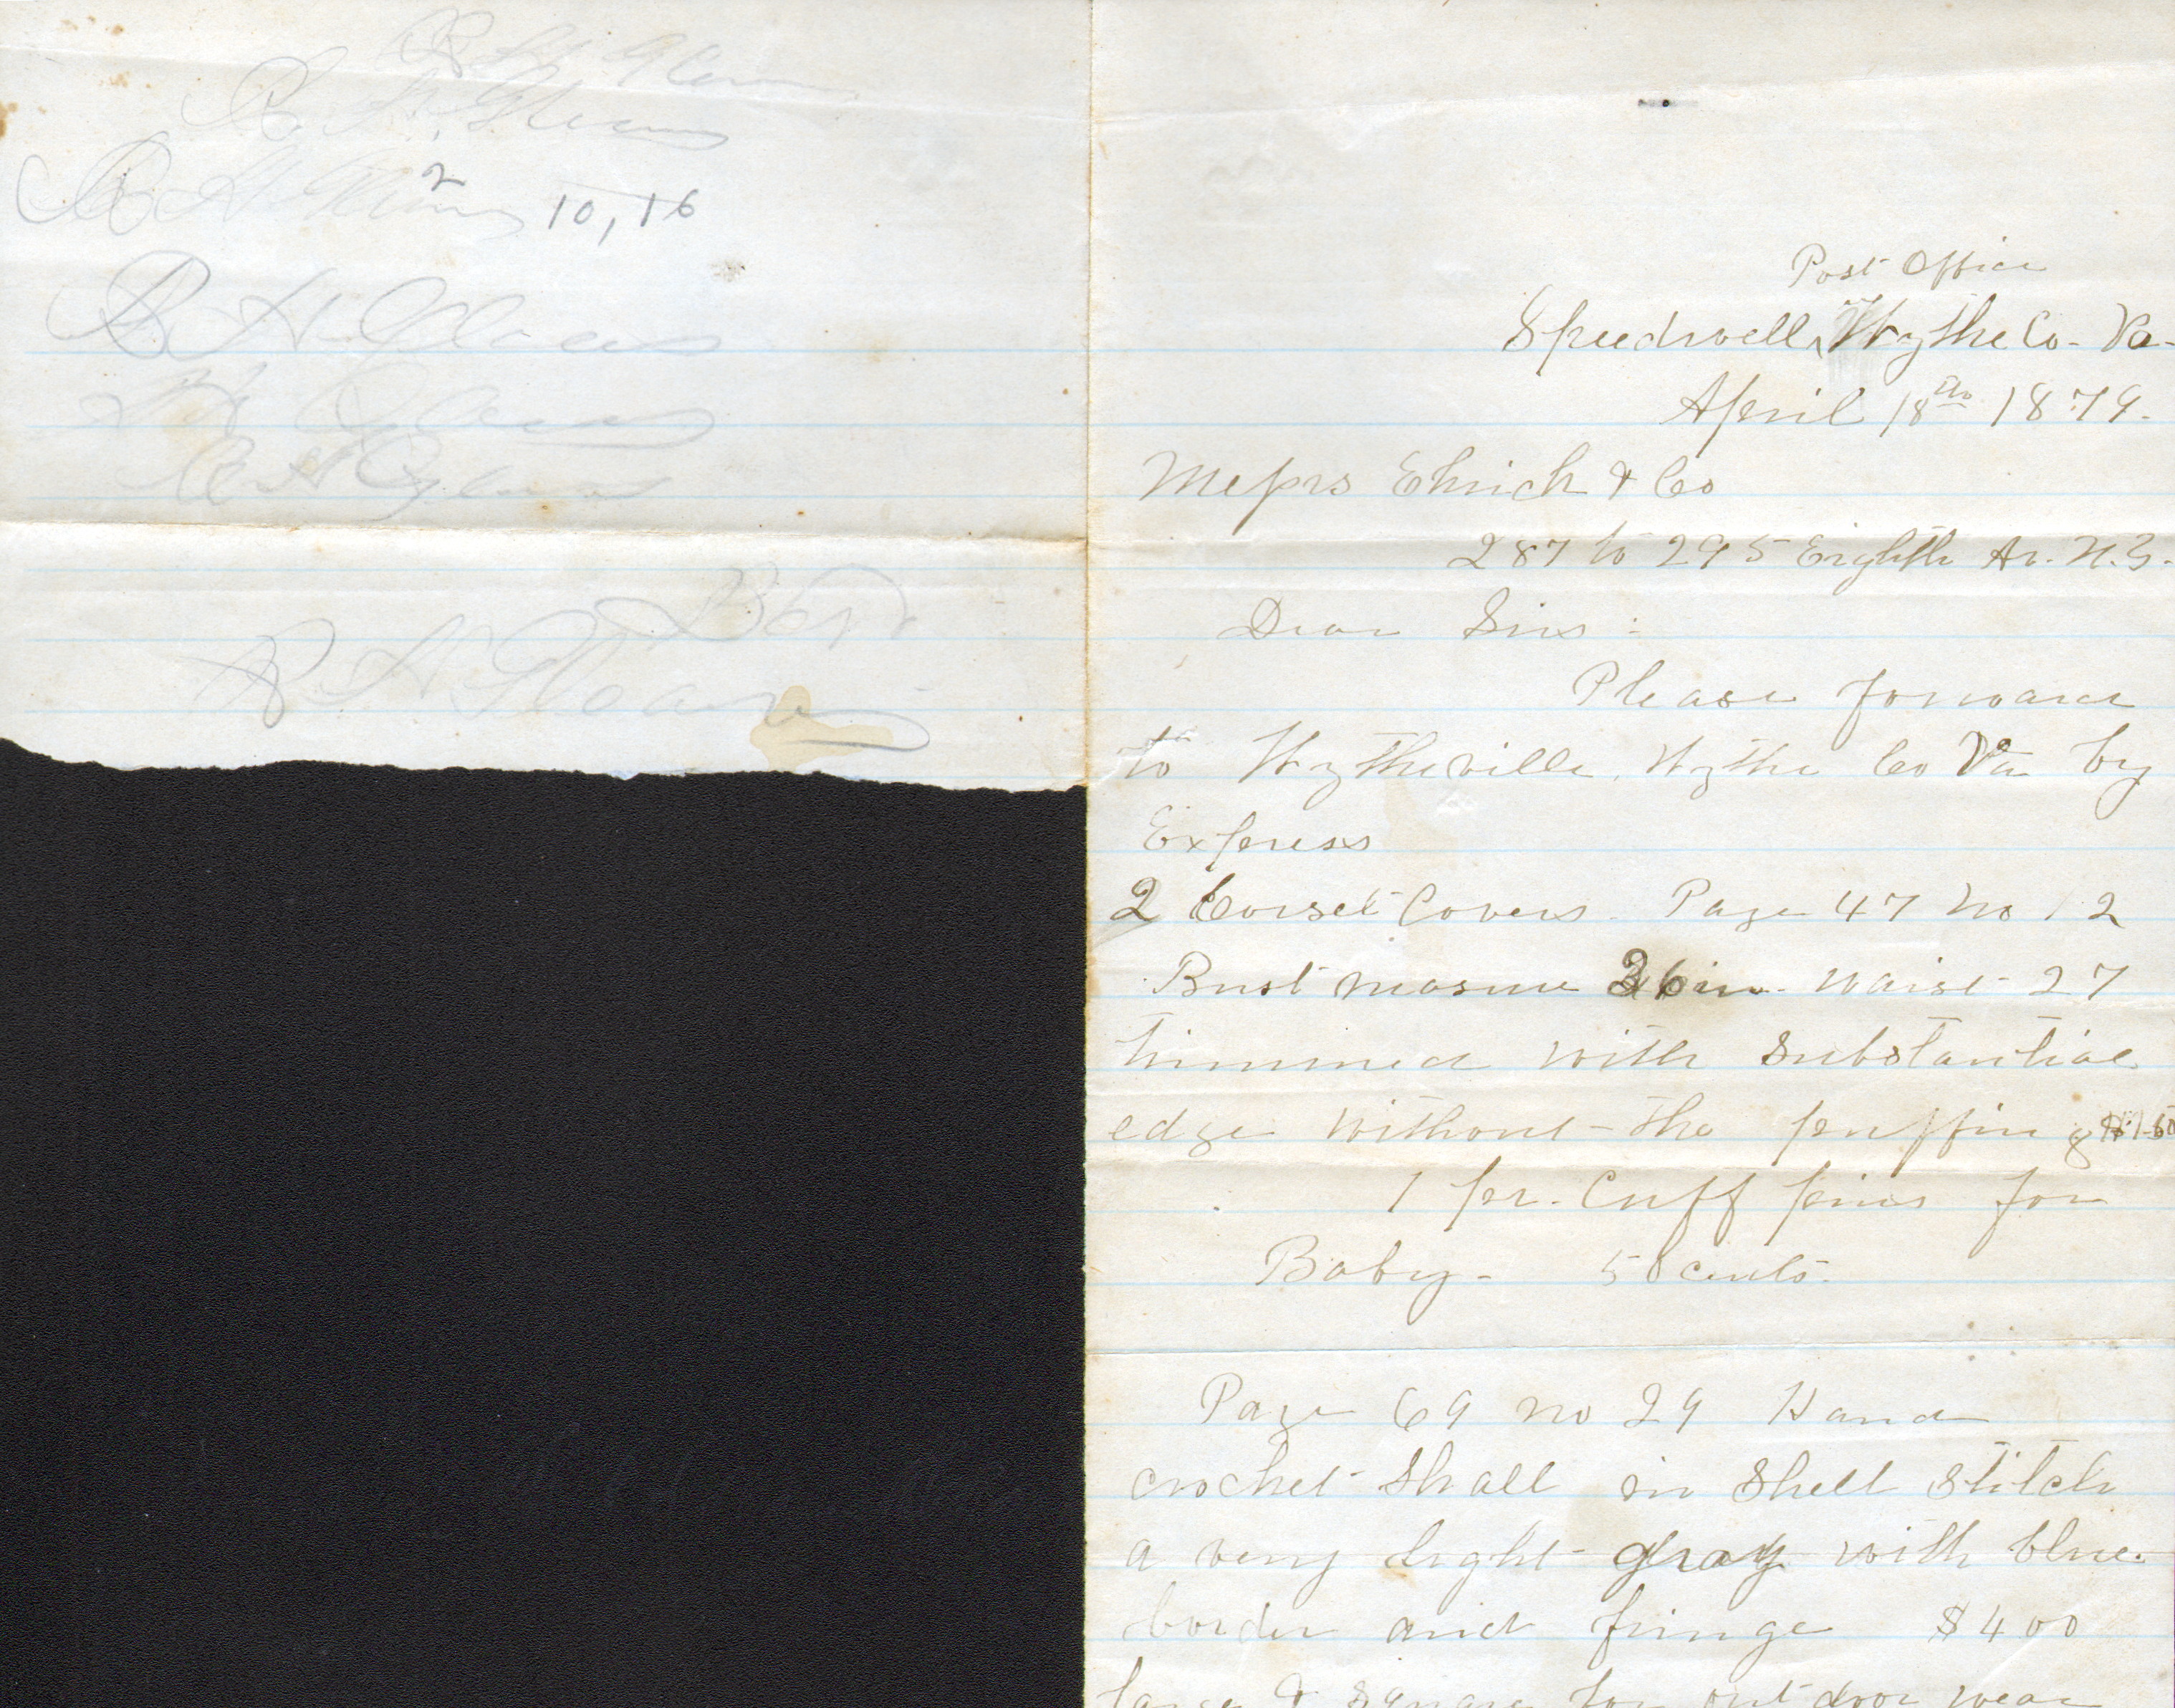 R. H. Gleaves
R. H. Gleaves
R H Gleaves
2
10, 16
R H Gleaves
H Gleaves
R H Gleaves
R H Gleaves
Post Office
Speedwell, Wythe Co. Va-
April 18th 1879.
Messrs Ehrich & Co
287 to 295 Eighth Av. N.Y.
Dear Sirs:
Please forward
to Wytheville, Wythe Co Va by
Express
2 Corset Covers Page 47 no 12
Bust measure 36 in. waist 27
trimmed with substantial
edge without the puffing
1 pr. Cuff pins for
Baby- 50 cents.
Page 69 no 29 Hand
crochet Shall in Shell Stitch
a very light gray with blue
border and fringe $4 00
large & square for out door wear